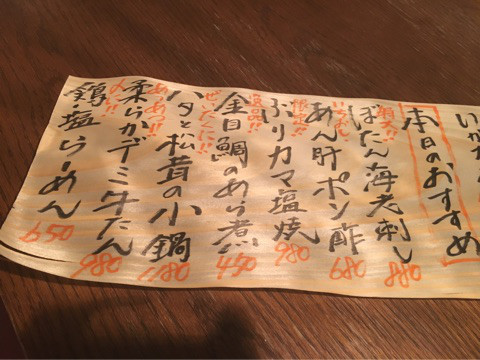 本日のおすすめ
ぼたん海老刺し
880
あん肝ポン酢
680
ぶりカマ塩焼
980
金目鯛のあら煮
450
ハタと松茸の小鍋
1180
柔らかデミ牛たん
980
鶏塩らーめん
650